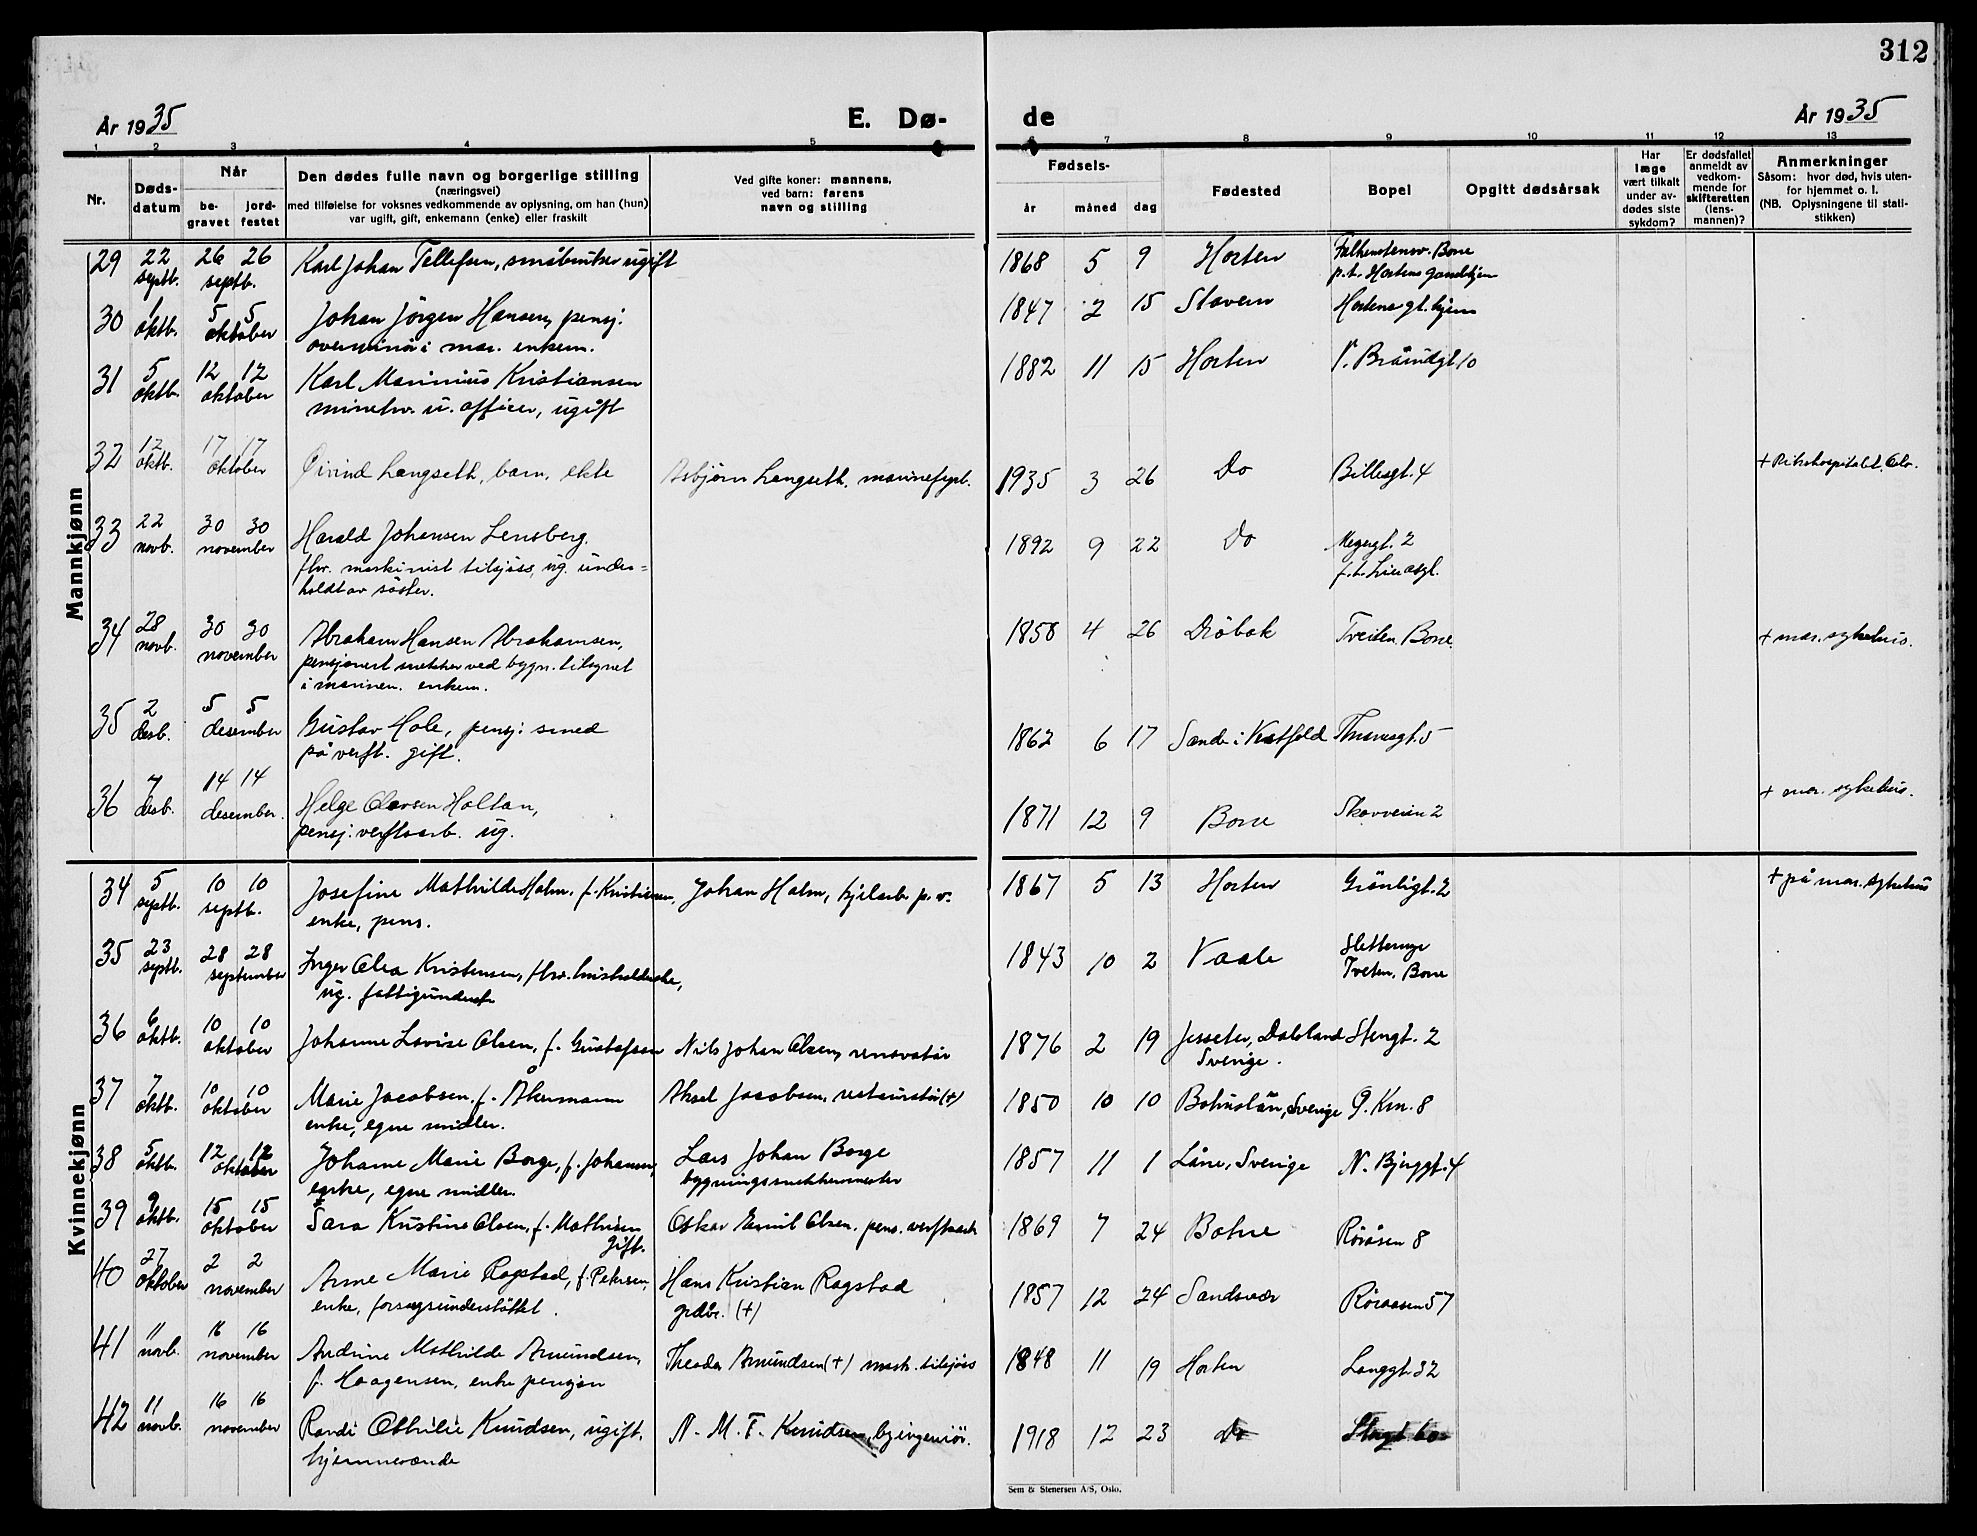 312
År 1935
E. Dø-
de
År 1935
1 2 3 4 5 6 7 8 9 10 11 12 13
Nr.
Døds-
datum
Når
be-
gravet
jord-
festet
Den dødes fulle navn og borgerlige stilling
(næringsvei)
med tilføielse for voksnes vedkommende av oplysning, om han (hun)
var ugift, gift, enkemann (enke) eller fraskilt
Ved gifte koner: mannens,
ved barn: farens
navn og stilling
Fødsels-
år måned dag
Fødested
Bopel
Opgitt dødsårsak
Har
læge
vært tilkalt
under av-
dødes siste
sykdom?
Er dødsfallet
anmeldt av
vedkom-
mende for
skifteretten
(lens-
mannen)?
Anmerkninger
Såsom: hvor død, hvis uten-
for hjemmet o. l.
(NB. Oplysningene til stati-
stikken)
Mannkjønn
29 22 26 26 Karl Johan Tellefsen, småbruker ugift 1868 5 9 Horten Falkenstensv. Borre
septb. septb. p.t. Hortens gamlehjem
30 1 5 5 Johan Jörgen Hansen, pensj. 1847 2 15 Stavern Hortens gl. hjem
oktb. oktober i mar. enkem.
31 5 12 12 Karl Marinius Kristiansen 1882 11 15 Horten V. Bråndgt 10
oktb. oktober minetv. u. officer, ugift
32 12 17 17 Öivind Langseth, barn, ekte Asbjörn Langseth, 1935 3 26 Do Billesgt. 4 + Rikshospitalet, Oslo.
oktb. oktober
33 22 30 30 Harald Johansen Lensberg, 1892 9 22 Do 2
novb. november fhv. maskinist tilsjöss, ug. under=
holdt av söster.
34 28 30 30 Abraham Hansen Abrahamsen, 1850 4 26 Dröbak Tveiten, Borre. + mar. sykehus.
novb. november pensjonert snekker ved bygn. tilsynet
i marinen. enkem.
35 2 5 5 Gustav Hole, pensj. smed 1862 6 17 Sande i Vestfold Thranesgt. 5
desb. desember på verft. gift.
36 7 14 14 Helge Olavsen Holtan, 1871 12 9 Borre Skovveien 2 + mar. sykehus.
desb. desember. pensj. verftsarb. ug.
Kvinnekjønn
34 5 10 10 Josefine Mathilde Holm, f. Kristiansen, Johan Holm, kjelarb. p. v. 1867 5 13 Horten Grönligt. 2 + på mar. sykehus
septb. septb. enke, pens.
35 23 28 28 Inger Olea Kristensen, fhv. husholderske, 1843 10 2 Vaale Sletterne
septb. september ug. fattigunderst. Tveten, Borre
36 6 10 10 Johanne Lovise Olsen, f. Gustafsson Nils Johan Olsen, renovatör 1876 2 19 Jesseter, Dalsland Stengt. 2
oktb. oktober Sverige.
37 7 10 10 Marie Jacobsen, f. Åkermann Aksel Jacobsen, restauratör (+) 1850 10 10 Bohuslän, Sverige Ö. Km. 8
oktb. oktober enke, egne midler.
38 5 12 12 Johanne Marie Borge, f. Johansen, Lars Johan Borge 1857 11 1 Låne, Sverige N. Bjerggt. 4
oktb. oktober enke, egne midler. bygningssnekkermester
39 9 15 15 Sara Kristine Olsen, f. Mathisen Oskar Emil Olsen, pens. verftsarb. 1869 7 24 Botne Röråsen 8
oktb. oktober gift.
40 27 2 2 Anne Marie Rogstad, f. Petersen, Hans Kristian Rogstad 1857 12 24 Sandsvær Röraasen 57
oktober november enke, forsorgsunderstöttet. grdbr. (+)
41 11 16 16 Andrine Mathilde Amundsen, Theodor Amundsen (+) mask. tilsjöss 1848 11 19 Horten Langgt. 32
novb. november f. Haagensen, enke pensjon
42 11 16 16 Randi Othilie Knudsen, ugift, N. M. F. Knudsen, byingeniör. 1918 12 23 Do Stengt
novb. november hjemmeværende
Sem & Stenersen A/S, Oslo.